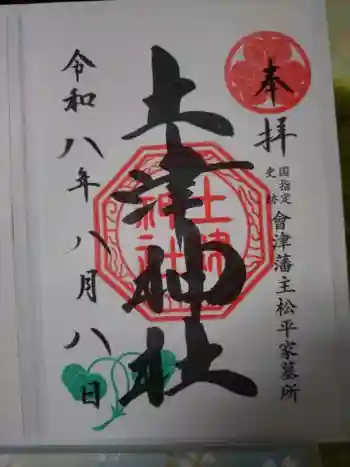 奉拝
国指定
史跡
會津藩主松平家墓所
土津神社
土津
神社
令和八年八月八日